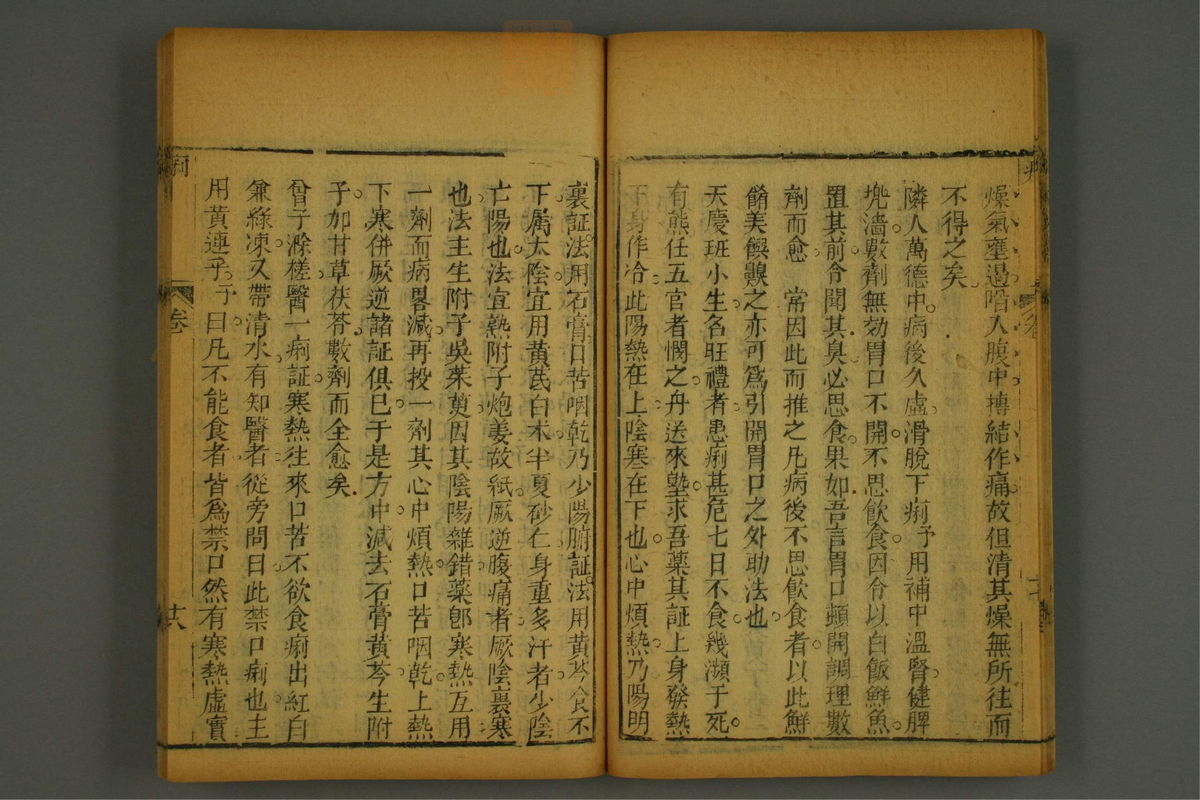 燥氣壅遏㗖人腹中摶結作痛故但清其燥無所往而
不得之矣
隣人萬德中病後久虛滑脫下痢予用補中溫腎健脾
堍濇數劑無効胃口不開不思飲食因令以白飯鮮魚
置其前令聞其臭必思食果如吾言胃口頓開調理數
劑而愈 常因此而推之凡病後不思飲食者以此鮮
餚美饌齅之亦可爲引開胃口之外助法也
天慶班小生名旺禮者患痢甚危七日不食幾瀕于死
有熊任五官者憫之舟送來塾求吾藥其証上身發熱
下身作冷此陽熱在上陰寒在下也心中煩熱乃陽明
裏証法用石膏口苦咽乾乃少陽腑証法用黃芩食不
下属太陰宜用黃芪白朮半夏砂仁身重多汗者少陰
亡陽也法宜熟附子炮姜故紙厥逆腹痛者厥陰裏寒
也法主生附子吳茱萸因其陰陽雜錯藥卽寒熱互用
一劑而病畧減再投一劑其心中煩熱口苦咽乾上熱
下寒併厥逆諸証俱已于是方中減去石膏黃芩生附
子加甘草茯苓數劑而全愈矣
曾子滁槎醫一痢証寒熱往來口苦不欲食痢出紅白
兼綠凍又帶清水有知醫者從旁問曰此禁口痢也主
用黃連予予曰凡不能食者皆爲禁口然有寒熱虛實
卷
廿八